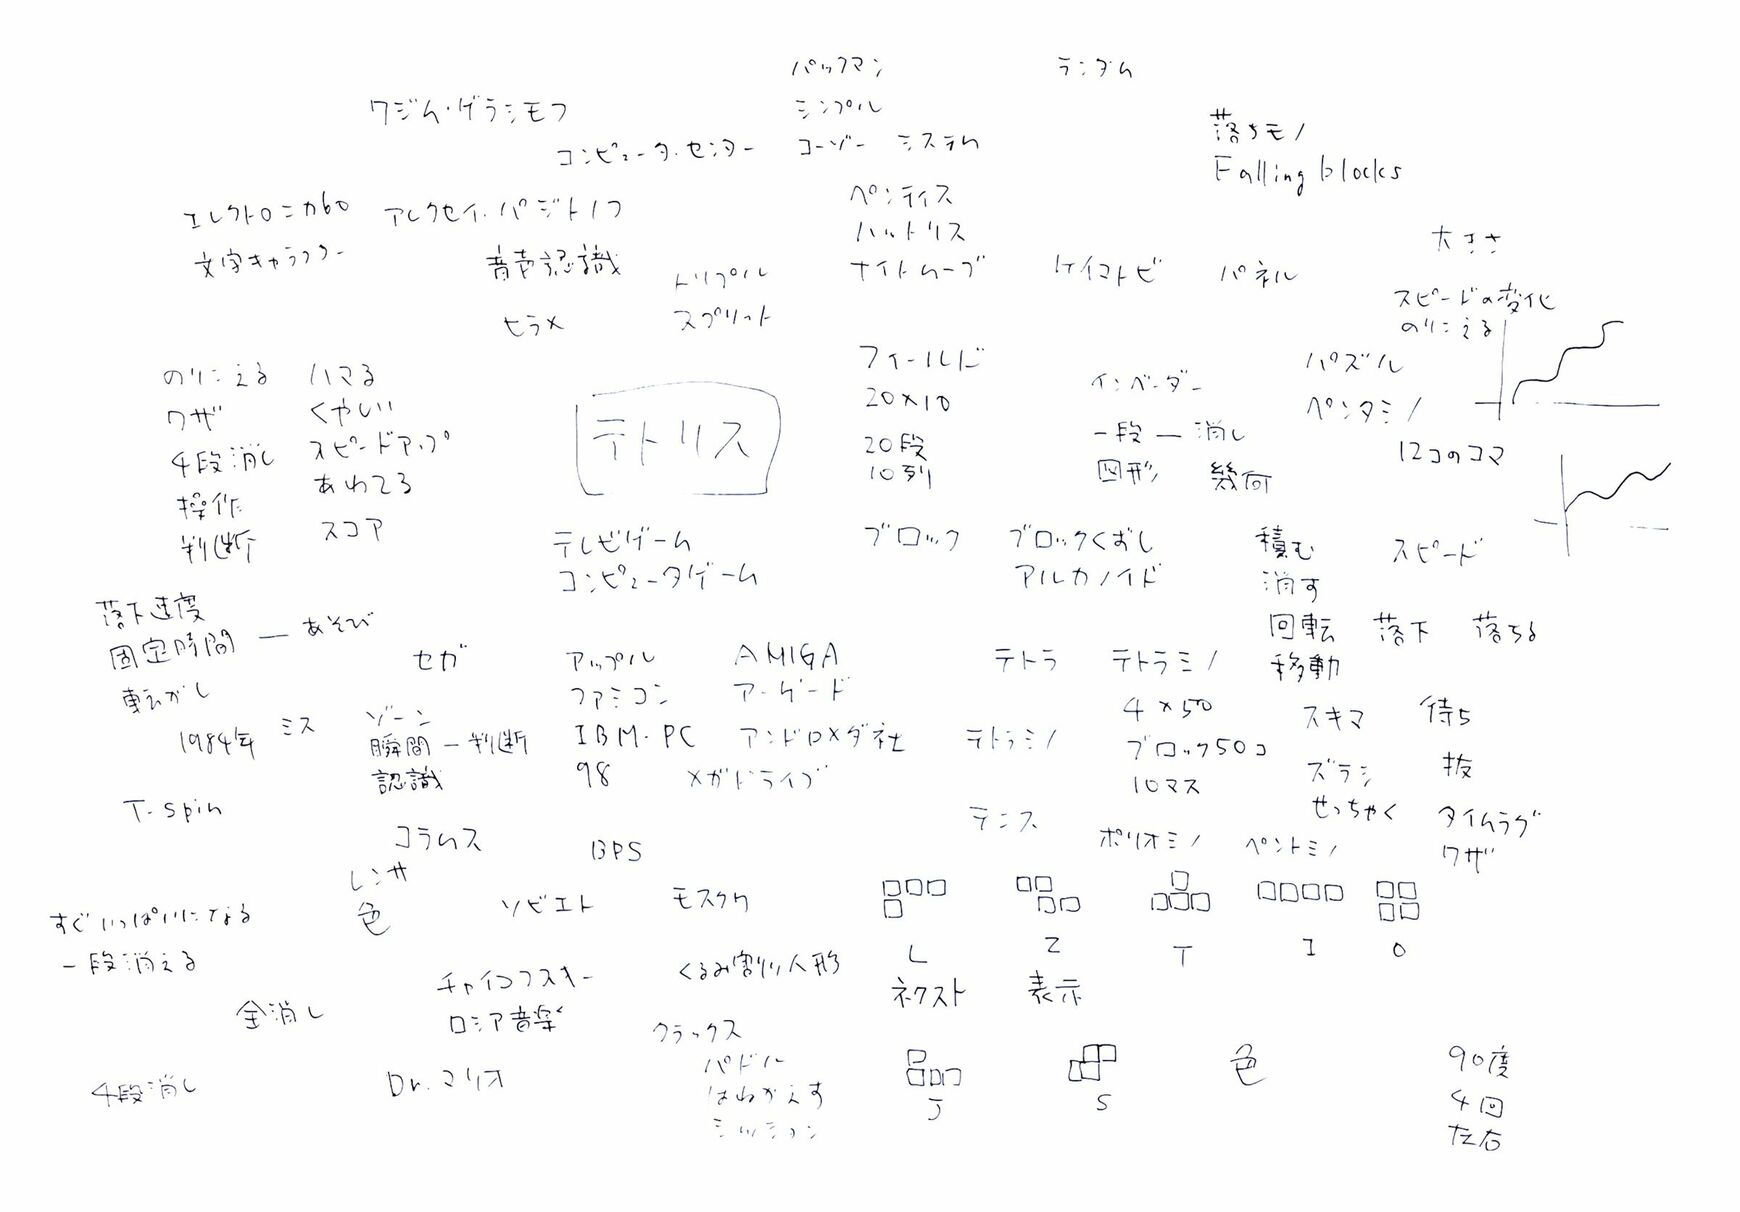 パックマン
ランダム
ワジム・ゲラシモフ
シンプル
落ちモノ
コンピュータ・センター
コーゾー
システム
Falling blocks
エレクトロニカ60
アレクセイ・パジトノフ
ペンティス
ハットリス
大きさ
文字キャラクター
音声認識
トリプル
ナイトムーブ
ケイマトビ
パネル
スプリット
ヒラメ
スピードの変化
のりこえる
のりこえる
ハマる
フィールド
パズル
ワザ
くやしい
20×10
インベーダー
ペンタミノ
4段消し
スピードアップ
テトリス
20段
一段 — 消し
12コのコマ
操作
あわてる
10列
図形
幾何
判断
スコア
テレビゲーム
ブロック
ブロックくずし
積む
スピード
コンピュータゲーム
アルカノイド
消す
落下速度
固定時間 — あそび
回転
落下
落ちる
セガ
アップル
AMIGA
テトラ
テトラミノ
移動
転がし
ファミコン
アーケード
4×50
スキマ
待ち
1984年
ミス
ゾーン
瞬間 — 判断
IBM-PC
アンドロメダ社
テトラミノ
ブロック50コ
認識
98
メガドライブ
10マス
ズラシ
抜
T-spin
せっちゃく
タイムラグ
コラムス
BPS
テニス
ポリオミノ
ペントミノ
ワザ
レンサ
色
すぐいっぱいになる
ソビエト
モスクワ
一段消える
L
Z
T
I
O
チャイコフスキー
くるみ割り人形
ネクスト
表示
全消し
ロシア音楽
クラックス
4段消し
Dr.マリオ
パドル
はねかえす
J
S
色
90度
4回
左右